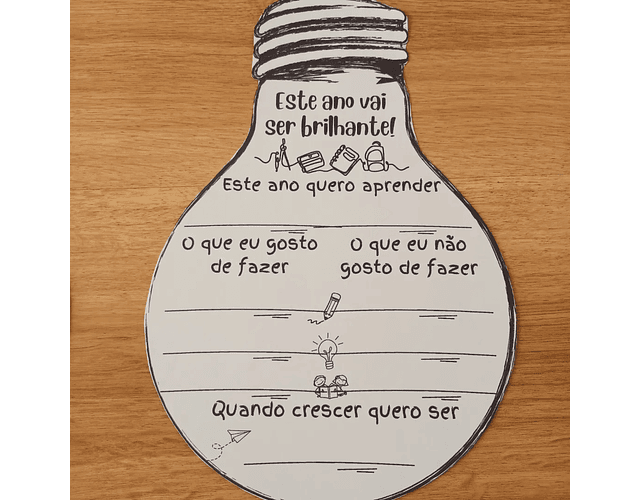 Este ano vai
ser brilhante!
Este ano quero aprender
O que eu gosto
de fazer
O que eu não
gosto de fazer
Quando crescer quero ser